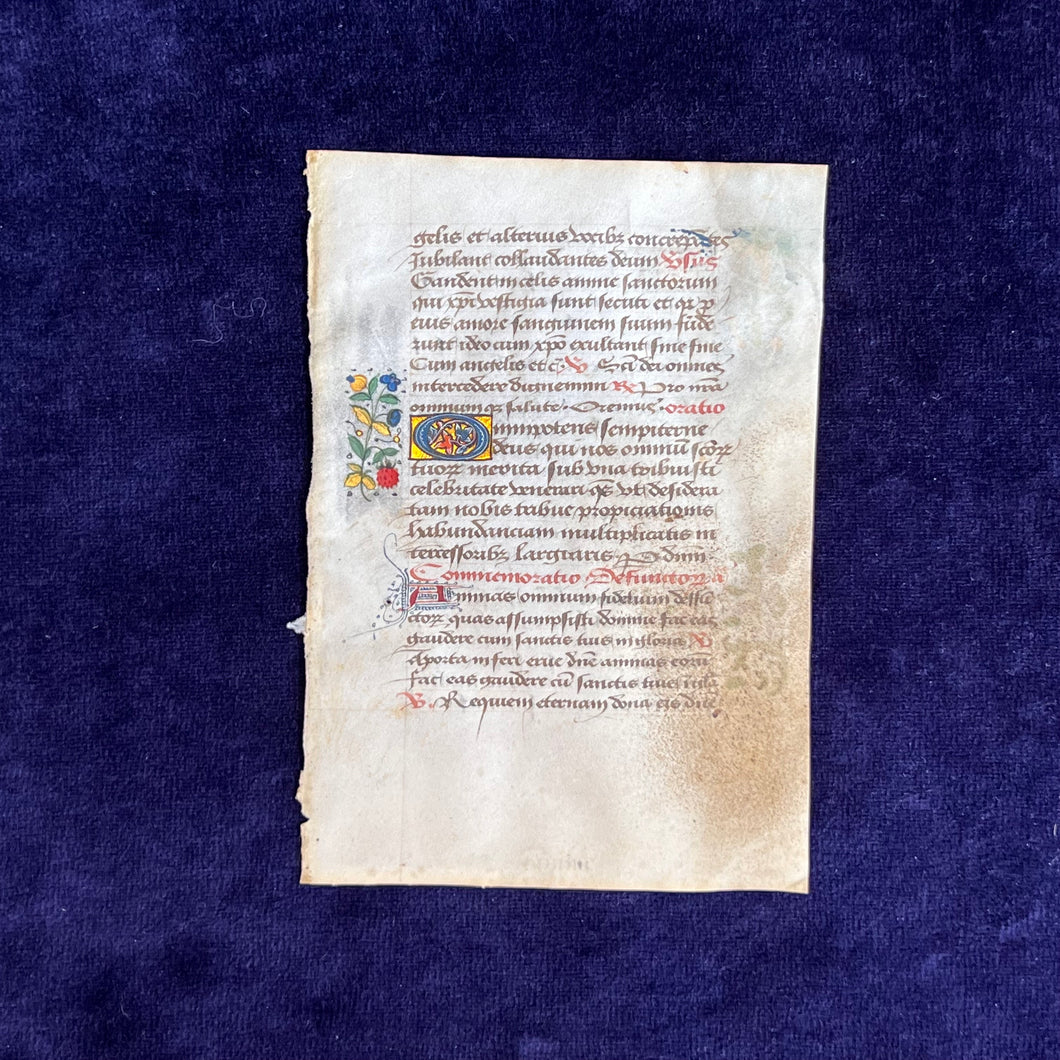 gelis et alterius vocibꝫ concrepātes
Iubilant collaudantes deum Vsus
Gaudent in celis anime sanctorum
qui xpi vestigia sunt secuti et qꝛ p
eius amore sanguinem suum fude
runt ideo cum xpō exultant sine fine
Cum angelis et cͣ. V Scī dei omnes
intercedere dignemini R Pro nrā
omniumqꝫ salute. Oremus. oratio
Omnipotens sempiterne
deus qui nos omniū scōꝝ
tuoꝝ merita sub vna tribuisti
celebritate venerari qs vt desidera
tam nobis tribue propiciationis
habundanciam multiplicatis in
tercessoribꝫ largiaris P dnm
Commemoratio Defunctor
Animas omnium fidelium defūc
ctoꝝ quas assumpsisti domine fac eas
gaudere cum sanctis tuis in gloria V
A porta inferi erue dn̄e animas eorū
fac eas gaudere cū sanctis tuis
V. Requiem eternam dona eis dn̄e